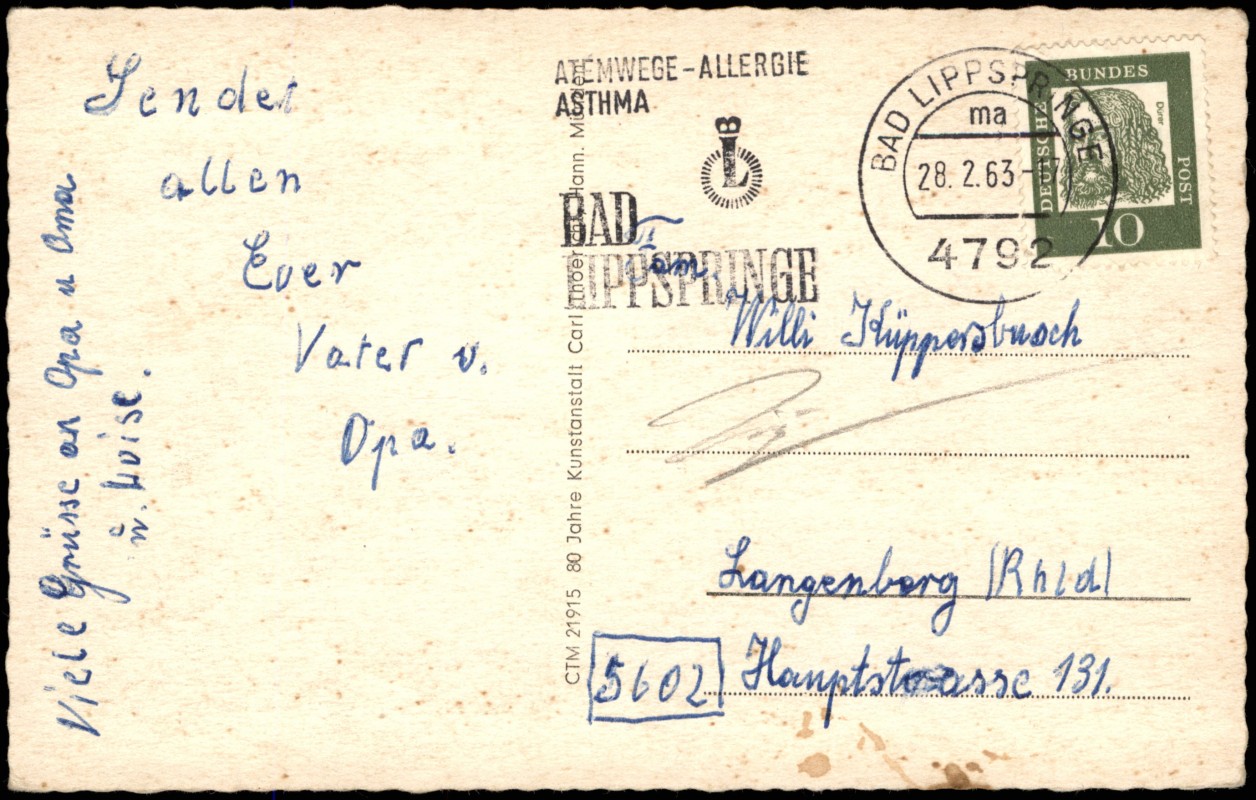 Sendet
allen
Euer
Vater u.
Opa.
Viele Grüsse an Opa u Oma
u. Luise.
CTM 21915 80 Jahre Kunstanstalt Carl Hann.
ATEMWEGE-ALLERGIE
ASTHMA
LB
BAD
LIPPSPRINGE
BAD LIPPSPRINGE
ma
28.2.63-17
4792
DEUTSCHE BUNDES POST
Dürer
10
Fam.
Willi Küppersbusch
Langenberg (Rhld)
5602
Hauptstrasse 131.